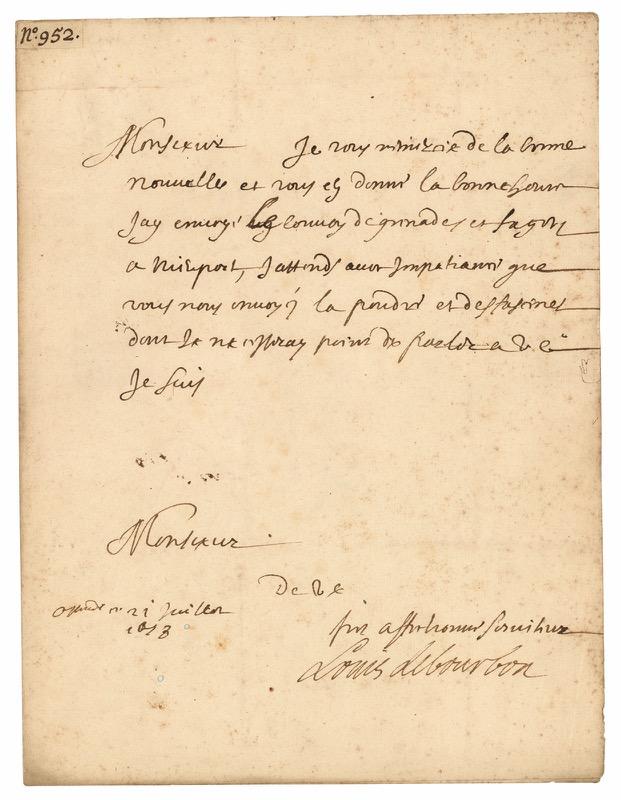 No. 952.
Monsieur Je vous remercie de la bonne
nouvelle et vous en donne la bonne heure
Jay envoyé les convoy de grenades et fagots
a Nieuport, Jattends avec Impatiance que
vous nous envoyé la poudre et des fascines
dont Je ne cesseray point de parler a V E
Je suis
Monsieur
De V E
21 Juillet
tres affectionné serviteur
Louis de bourbon